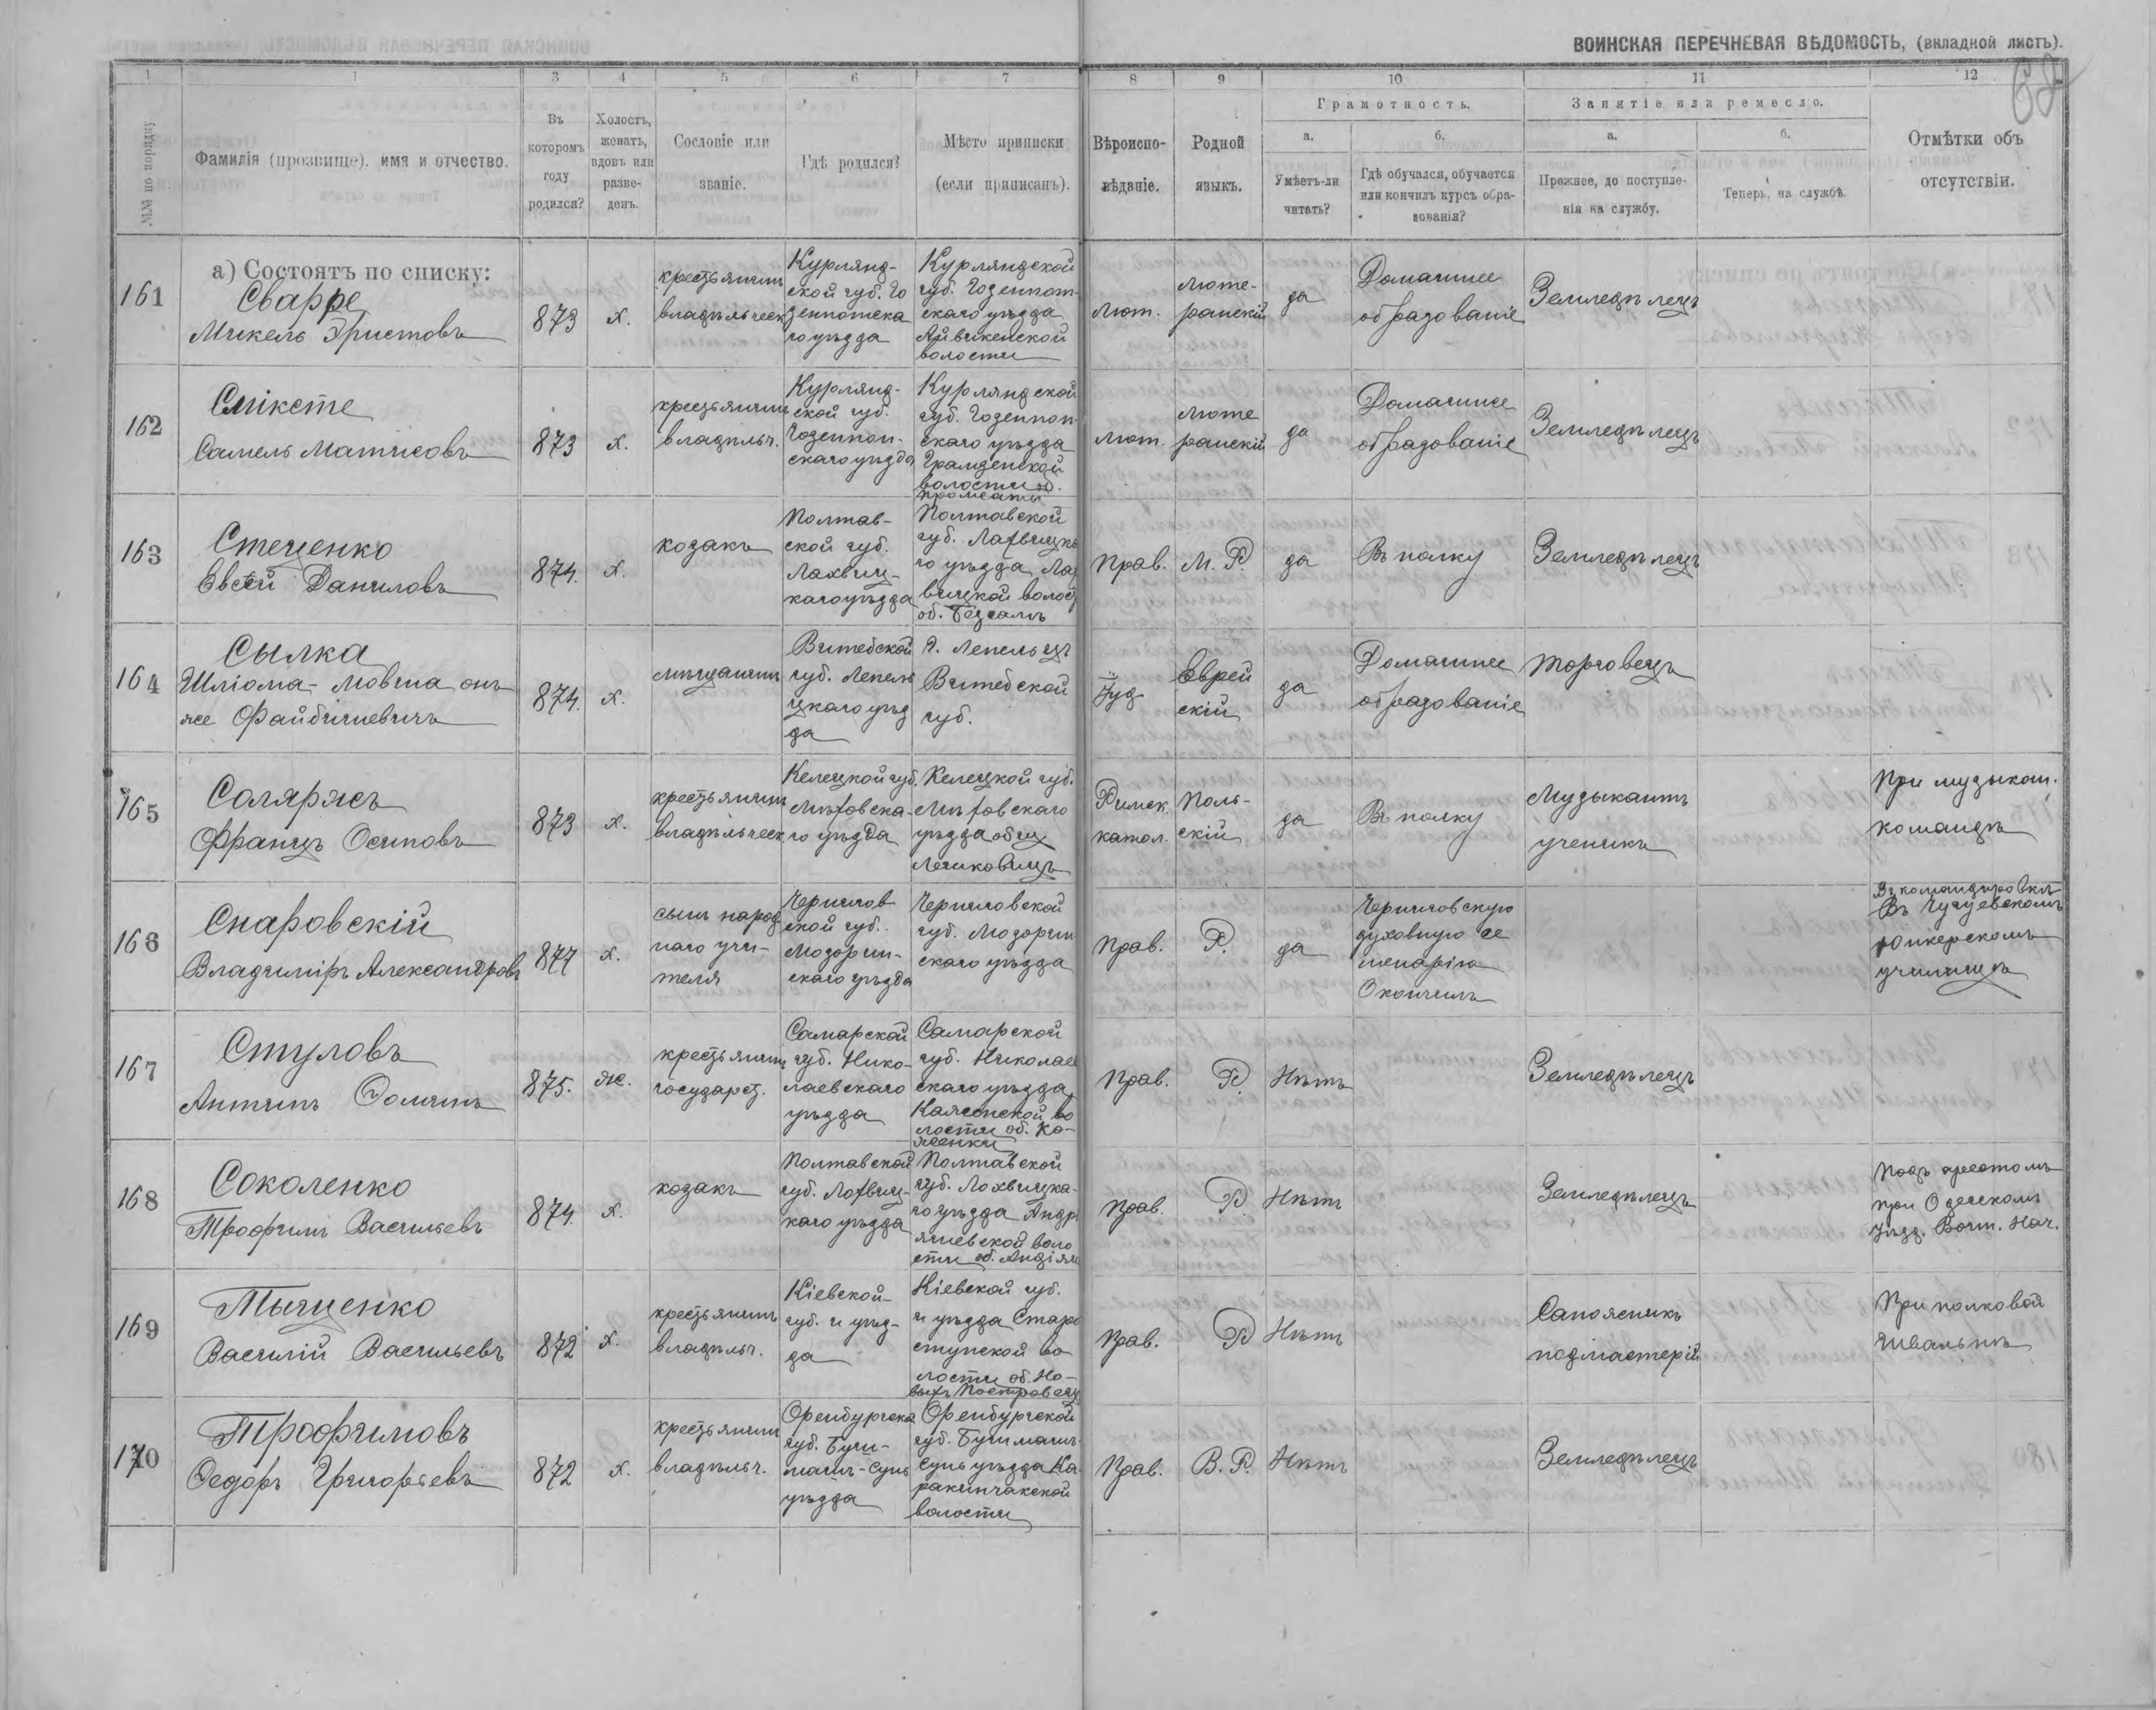 ВОИНСКАЯ ПЕРЕЧНЕВАЯ ВѢДОМОСТЬ, (вкладной листъ).
1 1 3 4 5 6 7 8 9 10 11 12
№№ по порядку
Фамилія (прозвище), имя и отчество.
Въ
которомъ
году
родился?
Холостъ,
женатъ,
вдовъ или
разве-
денъ.
Сословіе или
званіе.
Гдѣ родился?
Мѣсто приписки
(если приписанъ).
Вѣроиспо-
вѣданіе.
Родной
языкъ.
Грамотность.
а.
Умѣетъ-ли
читать?
б.
Гдѣ обучался, обучается
или кончилъ курсъ обра-
зованія?
Занятіе или ремесло.
а.
Прежнее, до поступле-
нія на службу.
б.
Теперь, на службѣ.
Отмѣтки объ
отсутствіи.
а) Состоятъ по списку:
161
Сварре
Микель Эристовъ
873
х.
крестьянинъ
владѣльческ
Курлянд-
ской губ. Го
зенпотска
го уѣзда
Курляндской
губ. Гозенпот-
скаго уѣзда
волости
Лют.
Люте-
ранскій
да
Домашнее
образованіе
Земледѣлецъ
162
Сликсте
Самель Матисовъ
873
х.
крестьянинъ
владѣльч.
Курлянд-
ской губ.
Гозенпот-
скаго уѣзда
Курляндской
губ. Гозенпот
скаго уѣзда
Грамзенской
волости об.
Лют.
Люте
ранскій
да
Домашнее
образованіе
Земледѣлецъ
163
Стеценко
Евсей Даниловъ
874.
х.
козакъ
Полтав-
ской губ.
Лахвиц-
каго уѣзда
Полтавской
губ. Лахвицка
го уѣзда, Лах
вицкой волос
об. Безсалъ
Прав.
М. Р.
да
Въ полку
Земледѣлецъ
164
Сылка
Шліома-Мовша онъ
же Файбишевичъ
874.
х.
мѣщанинъ
Витебской
губ. Лепель
цкаго уѣз
да
г. Лепельцъ
Витебской
губ.
Іуд.
Еврей
скій
да
Домашнее
образованіе
Торговецъ
165
Соляржъ
Францъ Осиповъ
873
х.
крестьянинъ
владѣльческ
Келецкой губ.
Мѣховска-
го уѣзда
Келецкой губ.
Мѣховскаго
уѣзда общ
Римск.
катол.
Поль-
скій
да
Въ полку
Музыкантъ
ученикъ
При музыкан.
командѣ
166
Снаровскій
Владиміръ Александровъ
877
х.
сынъ народ
наго учи-
теля
Чернигов
ской губ.
Мозорин-
скаго уѣзда
Черниговской
губ. Мозорин
скаго уѣзда
Прав.
Р.
да
Черниговскую
духовную се
минарію
Окончилъ
Въ командировкѣ
Въ Чугуевскомъ
юнкерскомъ
училищѣ
167
Стуловъ
Антипъ Фоминъ
875.
же.
крестьянинъ
государст.
Самарской
губ. Нико-
лаевскаго
уѣзда
Самарской
губ. Николаев
скаго уѣзда
Каменской во
лости об. Ка-
менки
Прав.
Р
Нѣтъ
Земледѣлецъ
168
Соколенко
Трофимъ Васильевъ
874.
х.
козакъ
Полтавской
губ. Лохвиц-
каго уѣзда
Полтавской
губ. Лохвицка-
го уѣзда Андр
яшевской воло
сти об. Андіяш
Прав.
Р
Нѣтъ
Земледѣлецъ
Подъ арестомъ
при Одесскомъ
Уѣзд. Воин. Нач.
169
Тыщенко
Василій Васильевъ
872
х.
крестьянинъ
владѣльч.
Кіевской
губ. и уѣз-
да
Кіевской губ.
и уѣзда Старо
ступской во
лости об. Но-
выхъ Петровец
Прав.
Р
Нѣтъ
Сапожникъ
подмастерій
При полковой
швальнѣ
170
Трофимовъ
Федоръ Григорьевъ
872
х.
крестьянинъ
владѣльч.
Оренбургска
губ. Буги-
манъ-Сунь
уѣзда
Оренбургской
губ. Бугиманъ
Сунь уѣзда Ка-
ракипчакской
волости
Прав.
В. Р.
Нѣтъ
Земледѣлецъ